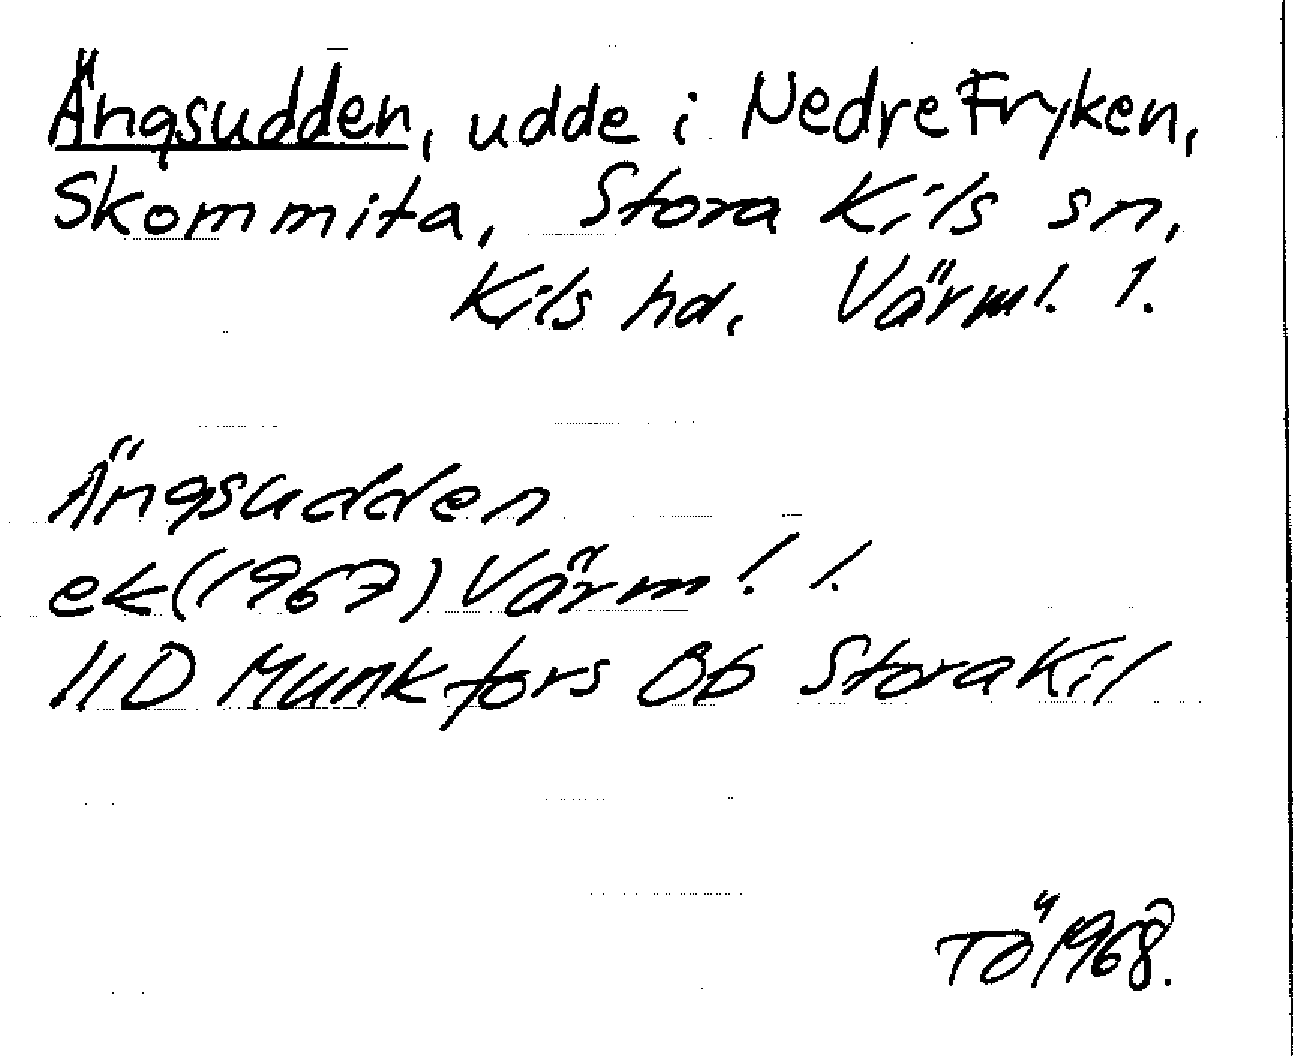 Ängsudden, udde i Nedre Fryken,
Skommita, Stora Kils sn,
Kils hd, Värml. l.
Ängsudden
ek (1967) Värml. l.
11D Munkfors 0b Stora Kil
TÖ 1968.